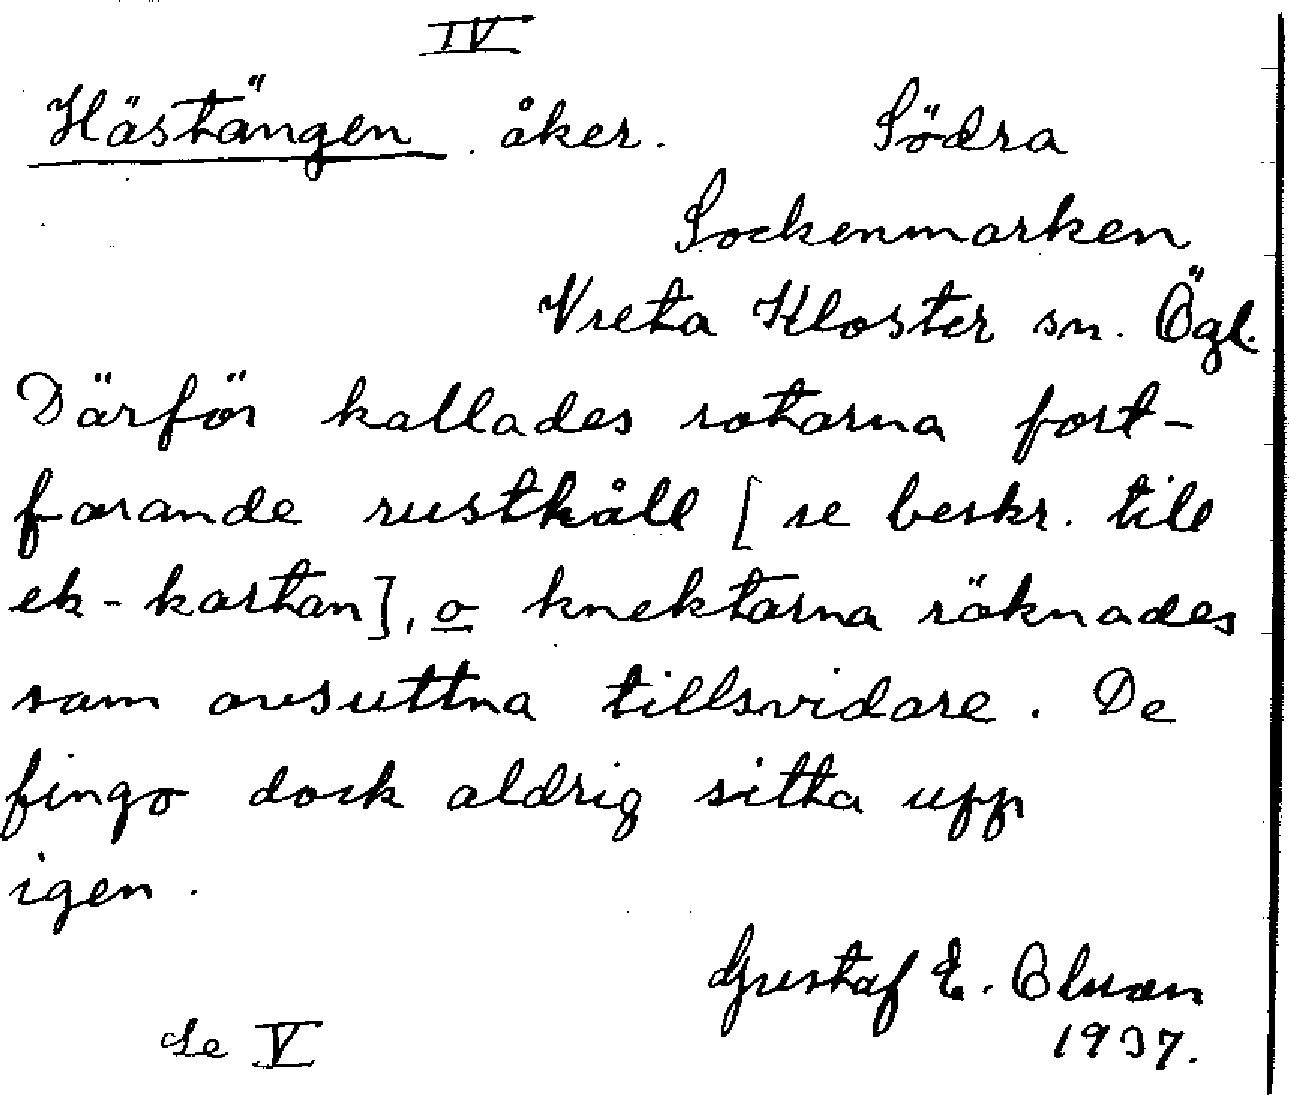 IV
Hästängen. åker. Södra
Sockenmarken
Vreta Kloster sn. Ögl.
Därför kallades rotarna fort-
farande rusthåll [se beskr. till
ek-kartan], o knektarna räknades
som avsuttna tillsvidare. De
fingo dock aldrig sitta upp
igen.
Gustaf E. Olsson
1937.
Se V